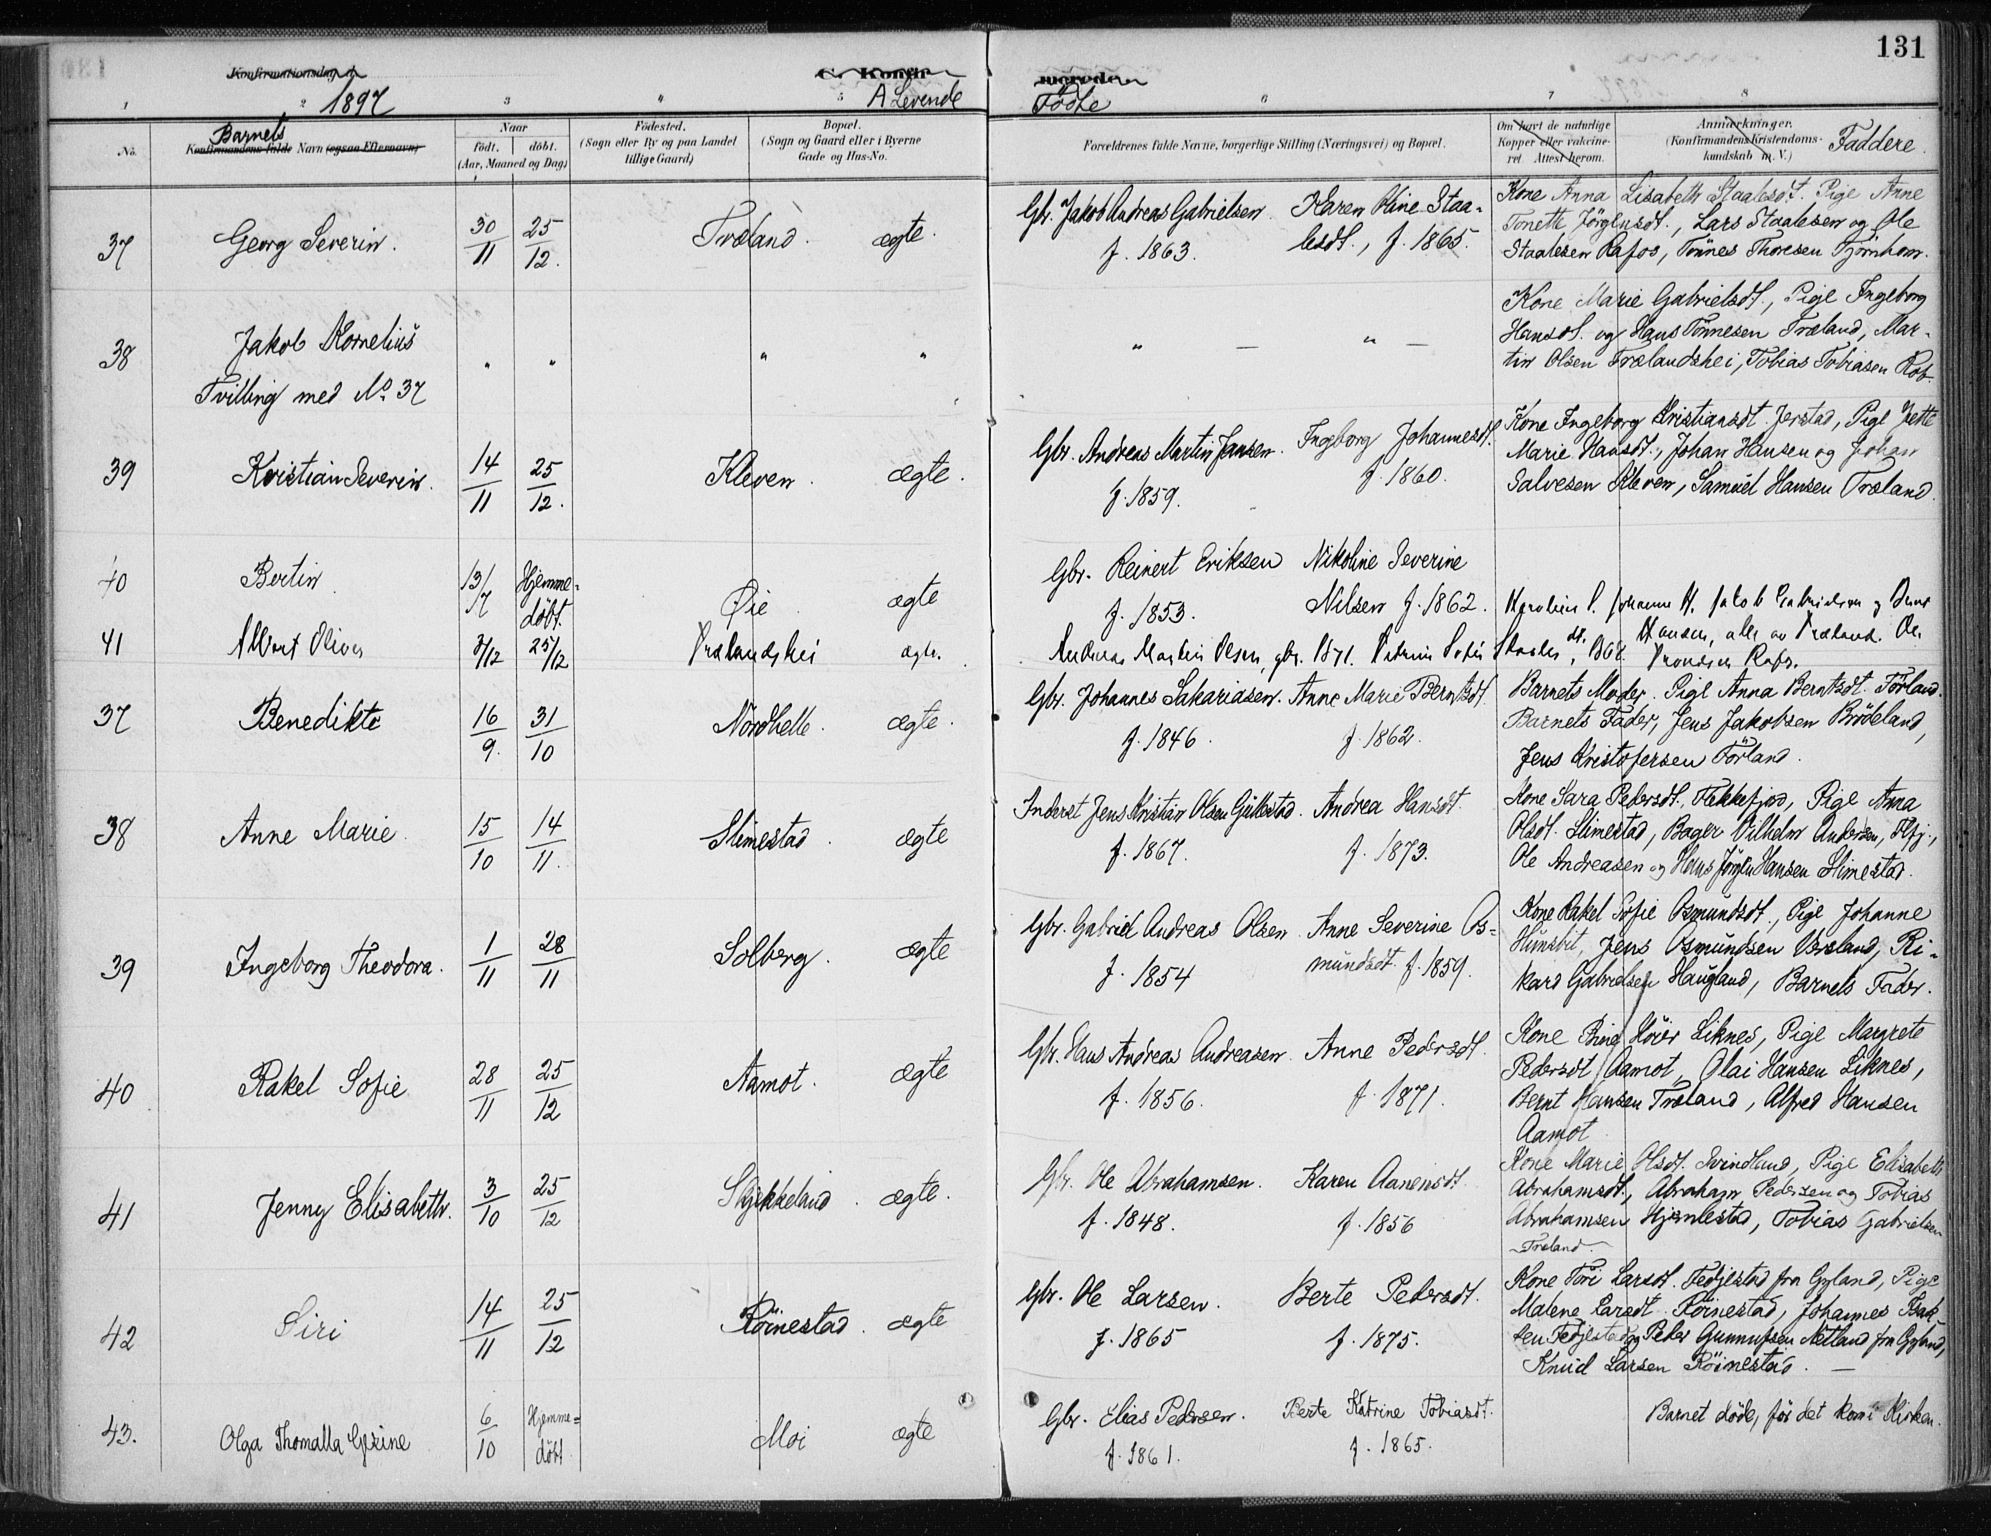 131
Konfirmationsdag
1897
C. Konfir
A Levende
merede
Fødte
1 2 3 4 5 6 7 8
No.
Barnets
Konfirmandens fulde Navn (ogsaa Efternavn)
Naar
født. døbt.
(Aar, Maaned og Dag)
Fødested.
(Sogn eller By og paa Landet
tillige Gaard)
Bopæl.
(Sogn og Gaard eller i Byerne
Gade og Hus-No.
Forældrenes fulde Navne, borgerlige Stilling (Næringsvei) og Bopæl.
Om havt de naturlige
Kopper eller vakcine-
ret. Attest herom.
Anmærkninger.
(Konfirmandens Kristendoms-
kundskab m. V.)
Faddere.
37 Georg Severin. 30/11 25/12. Træland. ægte.
Gbr. Jakob Andreas Gabrielsen f. 1863. Karen Oline Staa-
lesdt., f. 1865.
Kone Anna Lisabeth Staalesdt. Pige Anne
Tonette Jörgensdt., Lars Staalesen og Ole
Staalesen Rafos, Tönnes Thoresen Tjörnhom.
38 Jakob Kornelius
Tvilling med No. 37
" " " " " — " —
Kone Marie Gabrielsdt., Pige Ingeborg
Hansdt. og Hans Tönnesen Træland, Mar-
tin Olsen Trælandshei, Tobias Tobiasen
39 Kristian Severin. 14/11 25/12. Kleven. ægte.
Gbr. Andreas Martin Jansen. f. 1859. Ingeborg Johannesdt.
f. 1860.
Kone Ingeborg Kristiansdt. Jerstad, Pige Jette
Marie Hansdt., Johan Hansen og Johan
Salvesen Kleven, Samuel Hansen Træland.
40 Bertin 13/7 Hjemme-
döbt. Øie ægte
Gbr. Reinert Eriksen f. 1853. Nikoline Severine
Nilsen f. 1862.
41 Albert Oliver 3/12 25/12 Trælandshei ægte.
Andreas Martin Olsen, gbr. 1871. Petrine Sofie Staalesdt., 1868.
Johanne H. Jakob Gabrielsen og
Hansen, alle av Træland. Ole
Rafos.
37 Benedikte 16/9. 31/10 Nordhelle. ægte.
Gbr. Johannes Sakariasen. f. 1846. Anne Marie Berntsdt.
f. 1862.
Barnets Moder. Pige Anna Berntsdt. Förland.
Barnets Fader, Jens Jakobsen Brödeland,
Jens Kristofersen Förland.
38 Anne Marie. 15/10 14/11. Slimestad. ægte
Inderst Jens Kristian Olsen Gullestad. f. 1867. Andrea Hansdt.
f. 1873.
Kone Sara Pedersdt. Flekkefjord, Pige Anna
Olsdt. Slimestad, Bager Vilhelm Andersen, Flfj.,
Ole Andreasen og Hans Jörgen Hansen Slimestad.
39 Ingeborg Theodora. 1/11 28/11 Solberg. ægte
Gbr. Gabriel Andreas Olsen f. 1854 Anne Severine Os-
mundsdt. f. 1859.
Kone Rakel Sofie Osmundsdt., Pige Johanne
Hunsbet, Jens Osmundsen Versland, Ri-
kard Gabrielsen Haugland, Barnets Fader.
40 Rakel Sofie 28/11 25/12 Aamot. ægte
Gbr. Hans Andreas Andreasen. f. 1856. Anne Pedersdt.
f. 1871.
Kone Höier Liknes, Pige Margrete
Pedersdt Aamot, Olai Hansen Liknes,
Bernt Hansen Træland, Alfred Hansen
Aamot
41 Jenny Elisabeth. 3/10 25/12 Skjekkeland. ægte.
Gbr. Ole Abrahamsen. f. 1848. Karen Aanensdt.
f. 1856
Kone Marie Olsdt. Svindland, Pige Elisabeth
Abrahamsdt., Abraham Pedersen og Tobias
Abrahamsen Hjemlestad, Tobias Gabrielsen
Træland.
42 Siri 14/11 25/12 Röinestad. ægte
Gbr. Ole Larsen. f. 1865 Berte Pedersdt.
f. 1875.
Kone Töri Larsdt. Fedjestad fra Gyland, Pige
Malene Larsdt Röinestad, Johannes Isak-
sen Fedjestad og Peder Gunnufsen Netland fra Gyland,
Knud Larsen Röinestad. —
43. Olga Thomalla Gezine 6/10 Hjemme=
döbt Moi ægte
Gbr. Elias Pedersen. f. 1861. Berte Katrine Tobiasdt.
f. 1865.
Barnet døde, för det kom i Kirken.